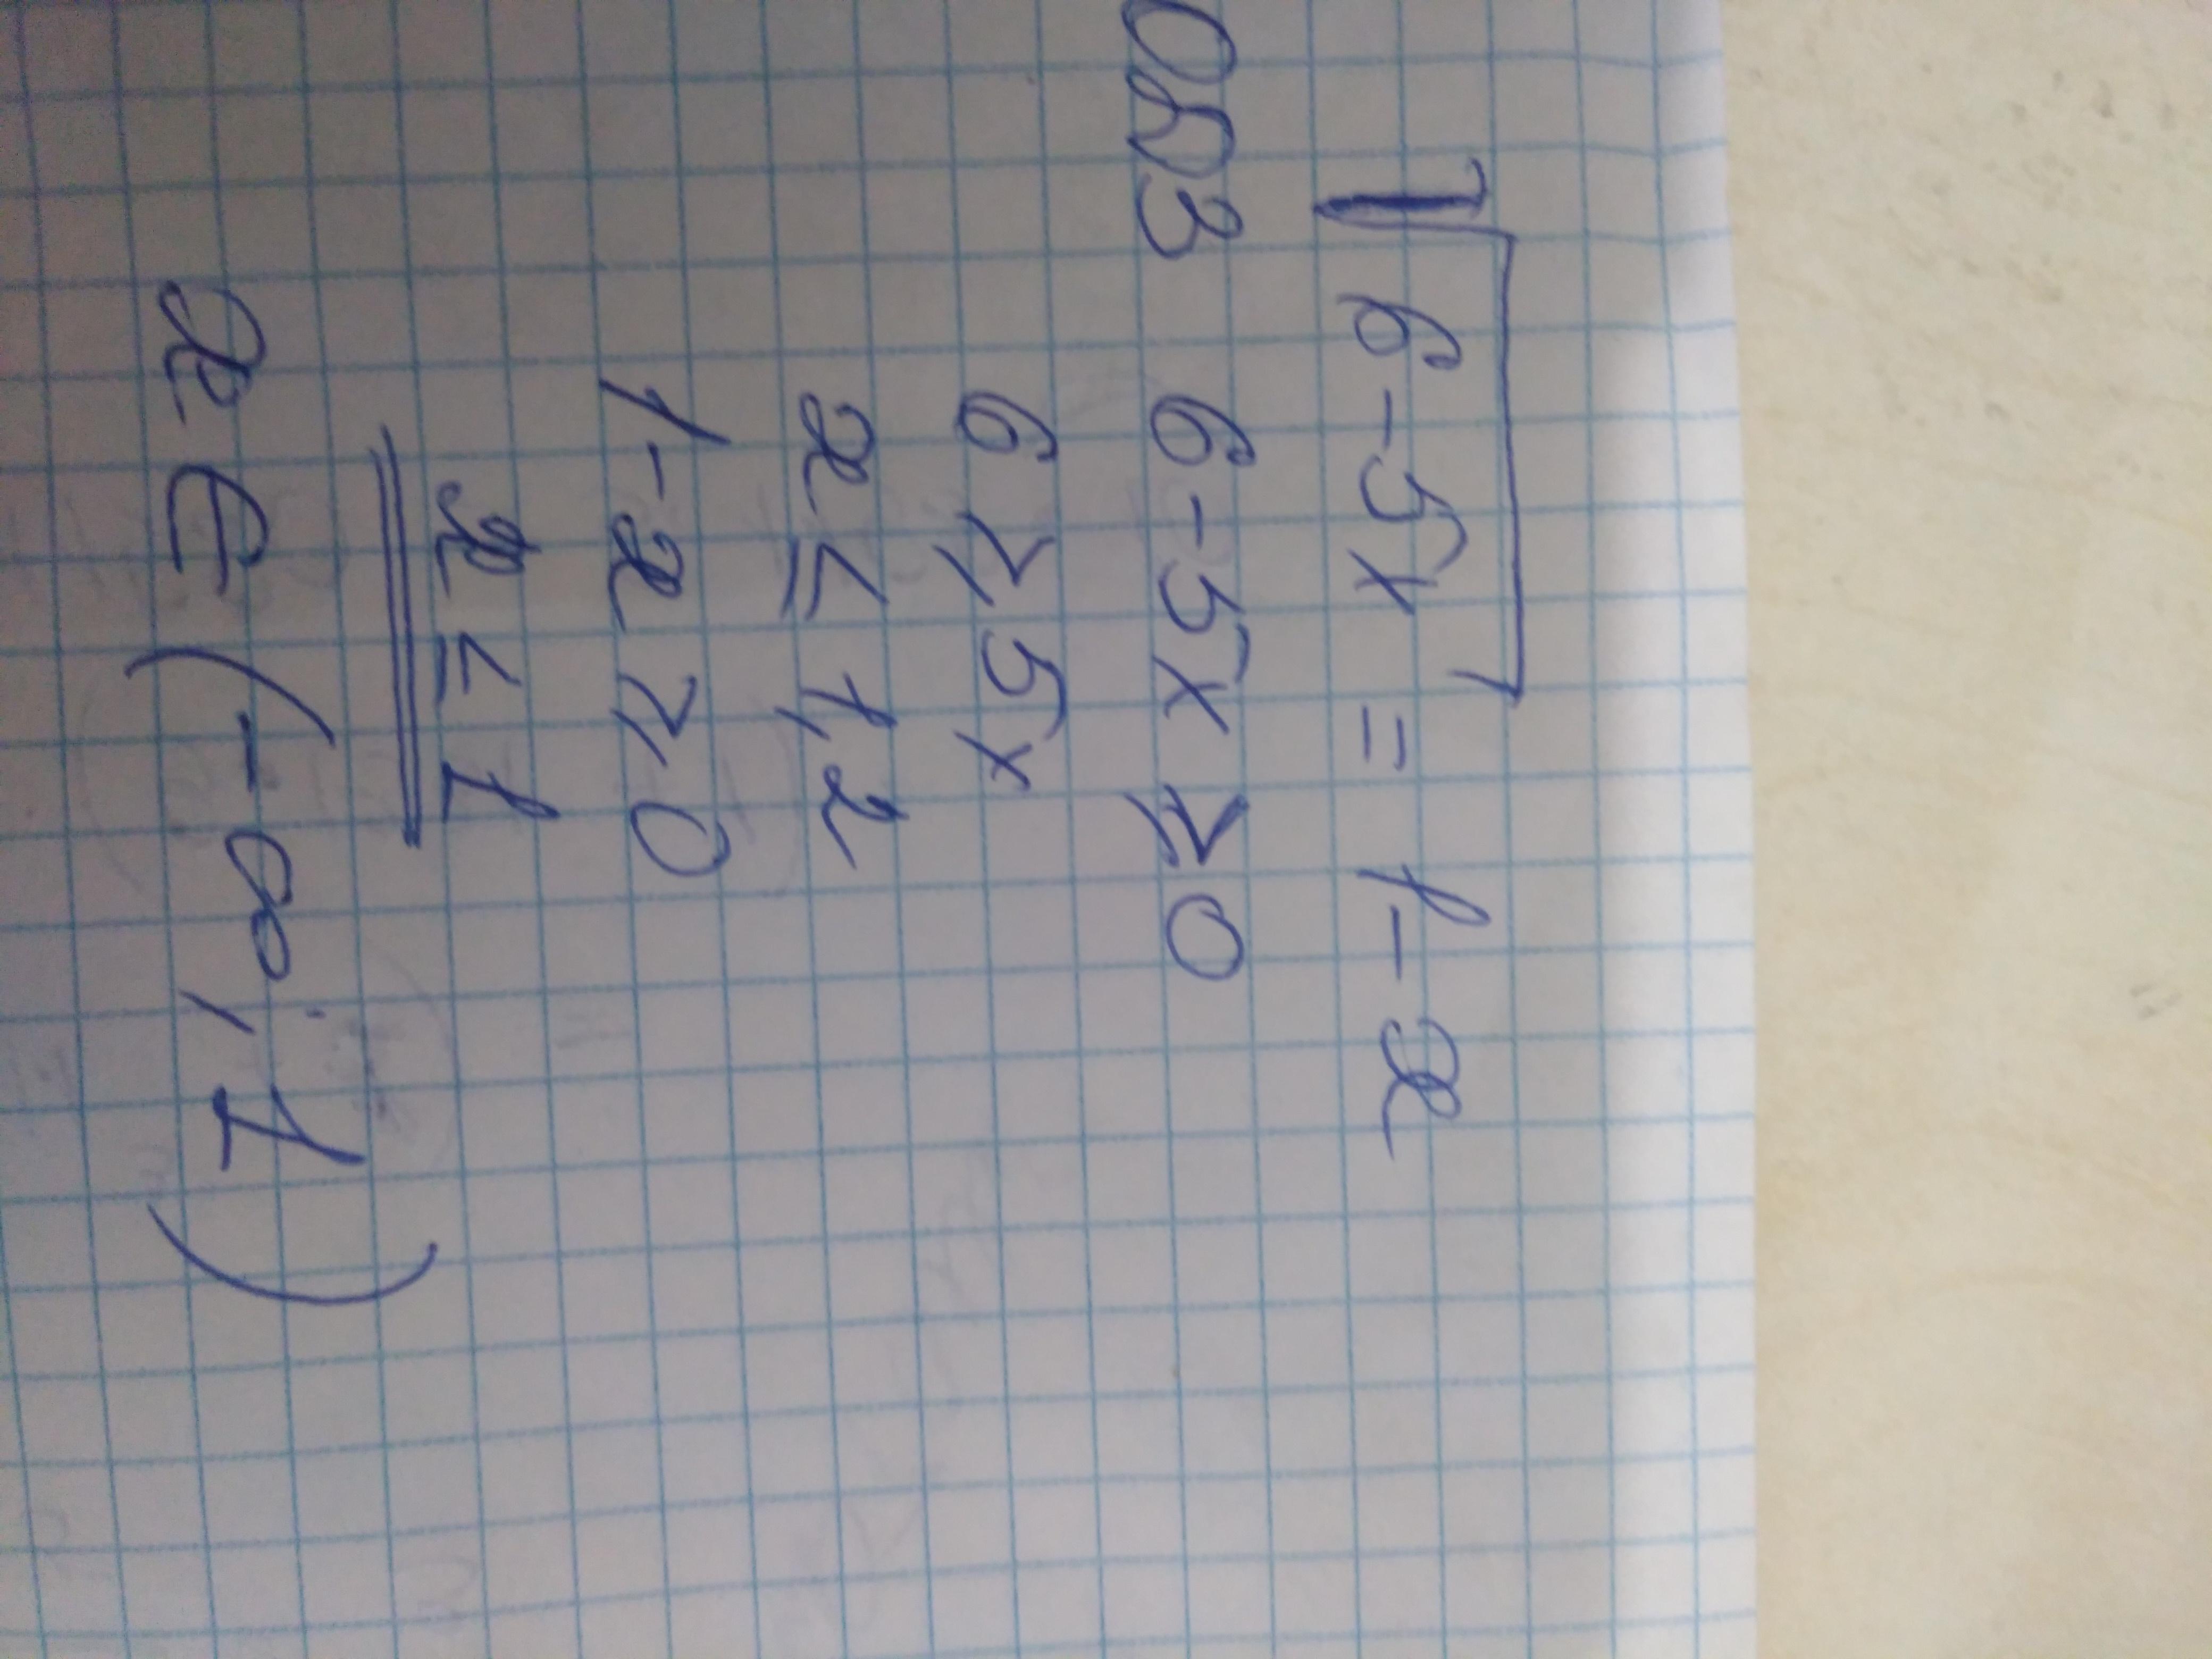 √6-5x = 1-x
ОДЗ 6-5x ≥ 0
6 ≥ 5x
x ≤ 1,2
1-x ≥ 0
x ≤ 1
x ∈ (-∞; 1)